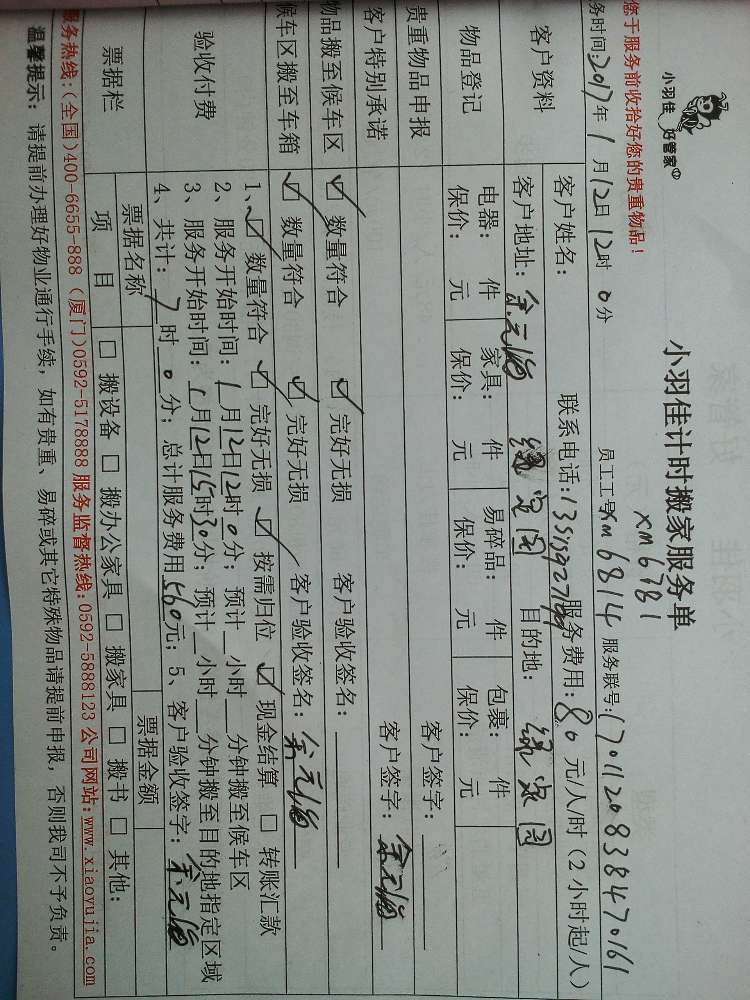 小羽佳 好管家
小羽佳计时搬家服务单
xm6781
您于服务前收拾好您的贵重物品！
员工工号xm6814 服务联号:1701120838470161
务时间:2017年1月12日12时0分
客户资料
客户姓名: 联系电话: 服务费用:80元/人/时（2小时起/人）
客户地址: 目的地:
物品登记
电器: 件 家具: 件 易碎品: 件 包裹: 件
保价: 元 保价: 元 保价: 元 保价: 元
贵重物品申报
客户签字:
客户特别承诺
客户签字:
物品搬至候车区
☑ 数量符合 ☑ 完好无损 客户验收签名:
候车区搬至车箱
☑ 数量符合 ☑ 完好无损 客户验收签名:
验收付费
1、☑ 数量符合 ☑ 完好无损 ☑ 按需归位 ☑ 现金结算 □ 转账汇款
2、服务开始时间: 1月12日12时0分; 预计 小时 分钟搬至候车区
3、服务开始时间: 1月12日15时30分; 预计 小时 分钟搬至目的地指定区域
4、共计: 7时0分; 总计服务费用560元; 5、客户验收签字:
票据栏
票据名称 票据金额
项目 □ 搬设备 □ 搬办公家具 □ 搬家具 □ 搬书 □ 其他:
服务热线:(全国)400-6655-888 (厦门)0592-5178888 服务监督热线:0592-5888123 公司网站:www.xiaoyujia.com
温馨提示: 请提前办理好物业通行手续，如有贵重、易碎或其它特殊物品请提前申报，否则我司不予负责。